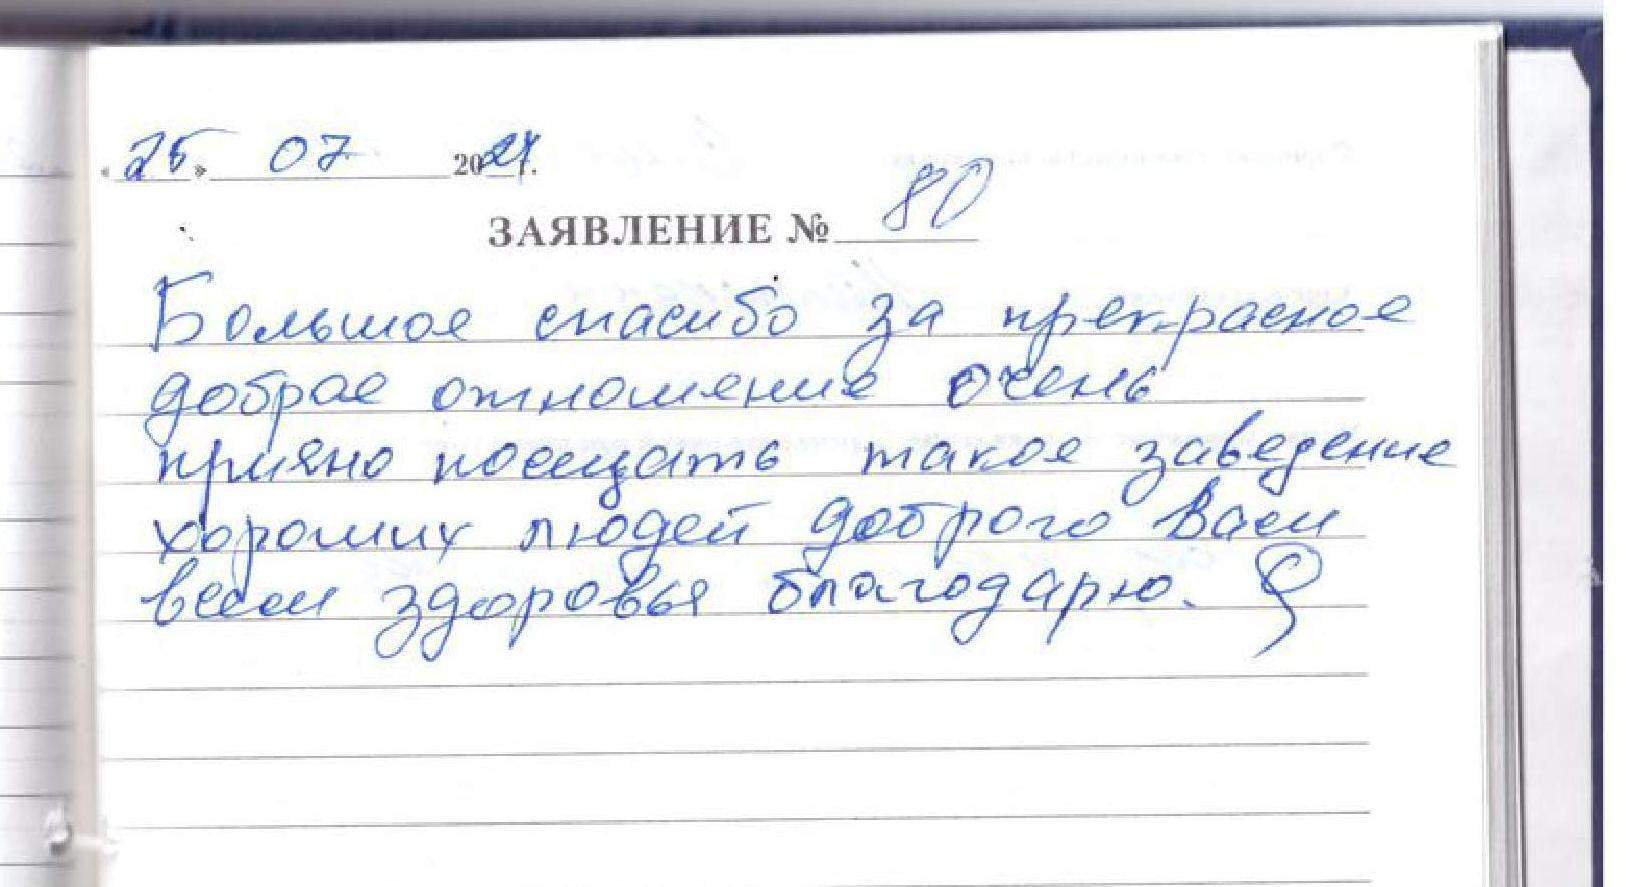 «25» 07 2024г.
ЗАЯВЛЕНИЕ № 80
Большое спасибо за прекрасное
доброе отношение очень
прияно посещать такое заведение
хороших людей доброго Вам
всем здоровья благодарю.